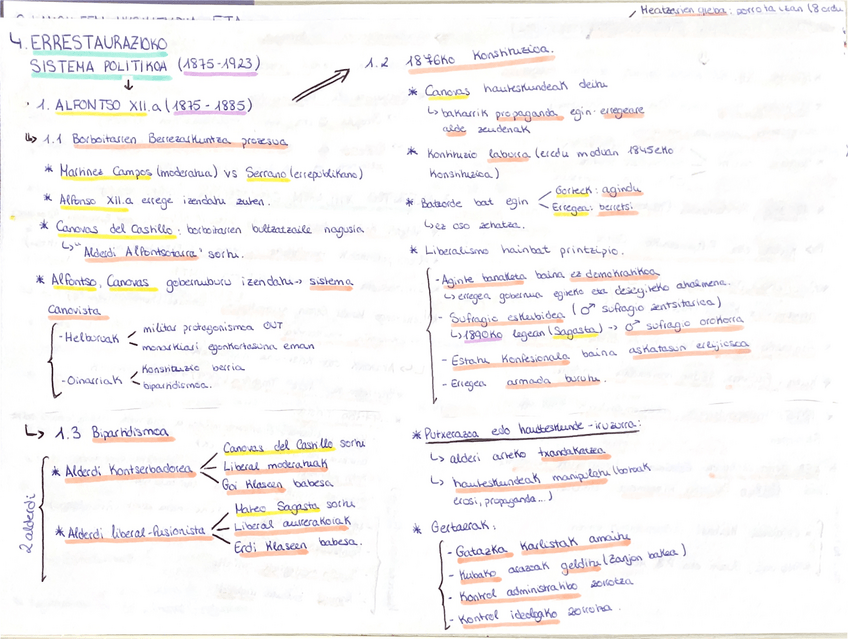 Meatzarien greba: zorrotz utan (8 ordu
4. ERRESTAURAZIOKO
SISTEMA POLITIKOA (1875-1923)
1. ALFONTSO XII.a (1875 - 1885)
↳ 1.1 Borboitarren Berrezarkuntza prozesua
* Martinez Campos (moderatua) vs Serrano (errepublikano)
* Alfonso XII.a errege izendatu zuten.
* Canovas del Castillo: borboitarren bultzatzaile nagusia
↳ "Alderdi Alfontsotarra" sortu.
* Alfontso, Canovas gobernuburu izendatu → sistema
canovista
- Helburuak
militar protagonismoa OUT
monarkiari egonkortasuna eman
- Oinarriak
Konstituzio berria
bipartidismoa.
1.2 1876ko Konstituzioa.
* Canovas hauteskundeak deitu
↳ bakarrik propaganda egin erregearen
alde zeudenak
* Kontituzio laburra (eredu moduan 1845eko
Konstituzioa)
* Batzorde bat egin
Gorteek: agindu
Erregea: berretsi
↳ ez oso zehatza.
* Liberalismo hainbat printzipio.
- Aginte banaketa baina ez demokratikoa
↳ erregea gobernua egiteko eta desegiteko ahalmena.
- Sufragio eskubidea (♂ sufragio zentsitarioa)
↳ 1890ko legean (Sagasta) → ♂ sufragio orokorra
- Estatu Konfesionala baina askatasun erlijiosoa
- Erregea armada burutu.
↳ 1.3 Bipartidismoa
2 alderdi
* Alderdi Kontserbadorea
Canovas del Castillo sortu
Liberal moderatuak
Goi Klaseen babesa
* Alderdi liberal-Fusionista
Mateo Sagasta sortu
Liberal aurrerakoiak
Erdi Klaseen babesa.
* Putxerazoa edo hauteskunde-iruzurra:
↳ alderi arteko txandakatzea
↳ hauteskundeak manipulatu (botoak
erosi, propaganda...)
* Gertaerak:
- Gatazka Karlistak amaitu
- Kubako arazoak gelditu (Zanjon bakea)
- Kontrol administratibo zorrotza
- Kontrol ideologiko zorrotza.